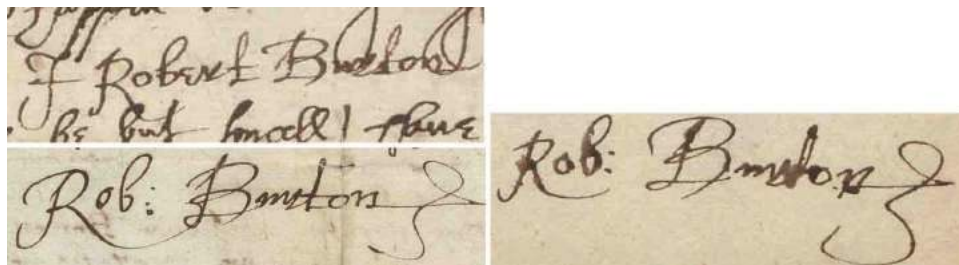 I Robert Burton
be but smcall
Rob: Burton
Rob: Burton